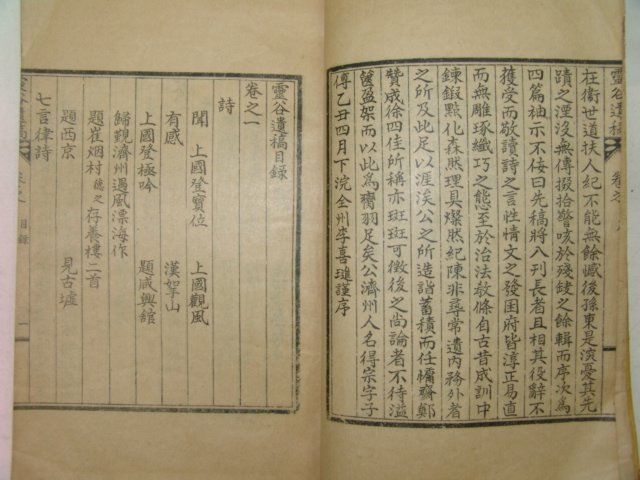 靈谷遺稿
在衛世道扶人紀不能無餘憾後孫東是深憂其先
蹟之湮沒無傳掇拾警咳於殘錢之餘輯而序次為
四篇袖示不佞曰先稿將入刊長者且相其役辭不
獲受而敬讀詩之言性情文之發囯府皆淳正易直
而無雕琢纖巧之態至於治法敎條自古昔成訓中
鍊鍛點化森然理具燦然紀陳非尋常遺內務外者
之所及此足以涯涘公之所造詣蓄積而任慵齋鄭
贊成徐四佳所稱亦斑斑可徵後之尚論者不待溢
篋盈架而以此為嚆羽足矣公濟州人名得宗字子
傅乙丑四月下浣全州李喜璡謹序
靈谷遺稿目錄
卷之一
詩
聞 上國登寶位 上國觀風
有感 漢拏山
上國登極吟 題咸興舘
歸覲濟州遇風漂海作
題崔烟村德之存養樓二首
題西京 見古墟
七言律詩
目錄
一